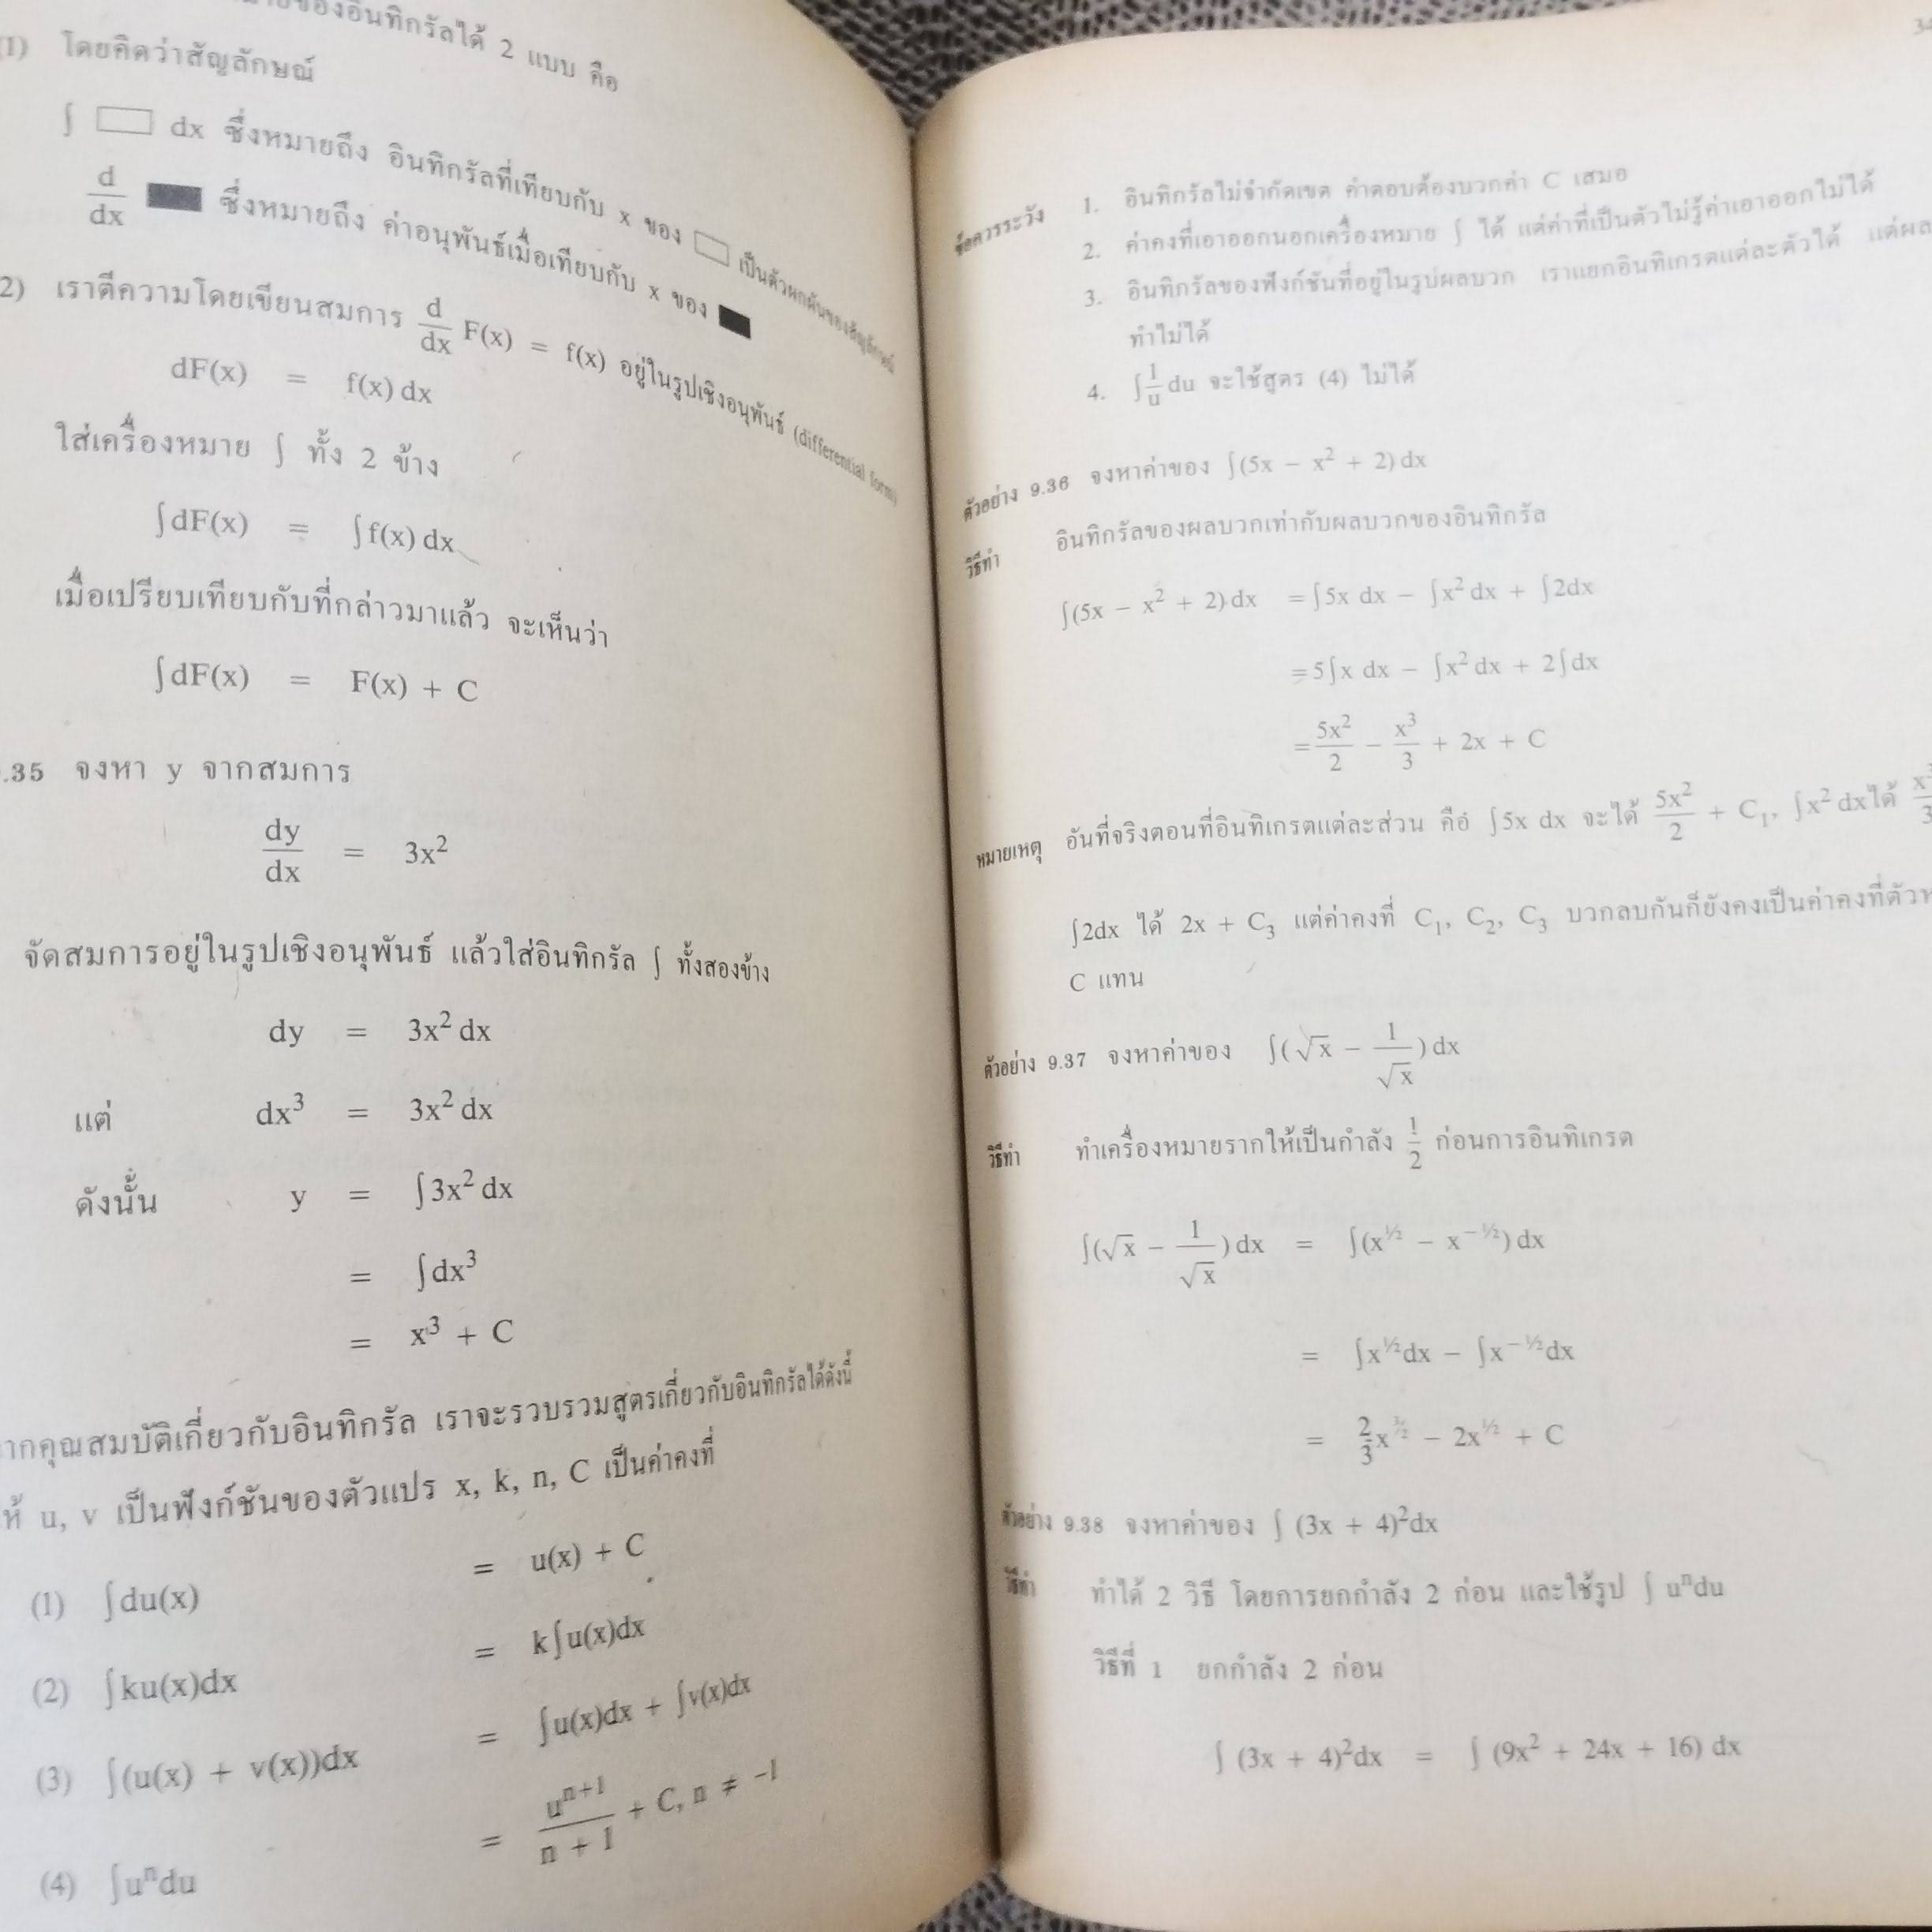 อินทิกรัลได้ 2 แบบ คือ
(1) โดยคิดว่าสัญลักษณ์
∫ □ dx ซึ่งหมายถึง อินทิกรัลที่เทียบกับ x ของ □ เป็นตัวผกผันของสัญลักษณ์
d/dx ■ ซึ่งหมายถึง ค่าอนุพันธ์เมื่อเทียบกับ x ของ ■
2) เราตีความโดยเขียนสมการ d/dx F(x) = f(x) อยู่ในรูปเชิงอนุพันธ์ (differential form)
dF(x) = f(x) dx
ใส่เครื่องหมาย ∫ ทั้ง 2 ข้าง
∫dF(x) = ∫f(x) dx
เมื่อเปรียบเทียบกับที่กล่าวมาแล้ว จะเห็นว่า
∫dF(x) = F(x) + C
.35 จงหา y จากสมการ
dy/dx = 3x²
จัดสมการอยู่ในรูปเชิงอนุพันธ์ แล้วใส่อินทิกรัล ∫ ทั้งสองข้าง
dy = 3x² dx
แต่ dx³ = 3x² dx
ดังนั้น y = ∫3x² dx
= ∫dx³
= x³ + C
ากคุณสมบัติเกี่ยวกับอินทิกรัล เราจะรวบรวมสูตรเกี่ยวกับอินทิกรัลได้ดังนี้
ห้ u, v เป็นฟังก์ชันของตัวแปร x, k, n, C เป็นค่าคงที่
(1) ∫du(x) = u(x) + C
(2) ∫ku(x)dx = k∫u(x)dx
(3) ∫(u(x) + v(x))dx = ∫u(x)dx + ∫v(x)dx
(4) ∫uⁿdu = uⁿ⁺¹/(n + 1) + C, n ≠ -1
34
ข้อควรระวัง 1. อินทิกรัลไม่จำกัดเขต คำตอบต้องบวกค่า C เสมอ
2. ค่าคงที่เอาออกนอกเครื่องหมาย ∫ ได้ แต่ค่าที่เป็นตัวไม่รู้ค่าเอาออกไม่ได้
3. อินทิกรัลของฟังก์ชันที่อยู่ในรูปผลบวก เราแยกอินทิเกรตแต่ละตัวได้ แต่ผล
ทำไม่ได้
4. ∫1/u du จะใช้สูตร (4) ไม่ได้
ตัวอย่าง 9.36 จงหาค่าของ ∫(5x − x² + 2) dx
วิธีทำ อินทิกรัลของผลบวกเท่ากับผลบวกของอินทิกรัล
∫(5x − x² + 2) dx = ∫5x dx − ∫x² dx + ∫2dx
= 5∫x dx − ∫x² dx + 2∫dx
= 5x²/2 − x³/3 + 2x + C
หมายเหตุ อันที่จริงตอนที่อินทิเกรตแต่ละส่วน คือ ∫5x dx จะได้ 5x²/2 + C₁, ∫x² dxได้ x³/3
∫2dx ได้ 2x + C₃ แต่ค่าคงที่ C₁, C₂, C₃ บวกลบกันก็ยังคงเป็นค่าคงที่ตัวห
C แทน
ตัวอย่าง 9.37 จงหาค่าของ ∫(√x − 1/√x) dx
วิธีทำ ทำเครื่องหมายรากให้เป็นกำลัง 1/2 ก่อนการอินทิเกรต
∫(√x − 1/√x) dx = ∫(x^½ − x^−½) dx
= ∫x^½dx − ∫x^−½dx
= 2/3 x^3/2 − 2x^½ + C
ตัวอย่าง 9.38 จงหาค่าของ ∫ (3x + 4)²dx
วิธีทำ ทำได้ 2 วิธี โดยการยกกำลัง 2 ก่อน และใช้รูป ∫ uⁿdu
วิธีที่ 1 ยกกำลัง 2 ก่อน
∫ (3x + 4)²dx = ∫ (9x² + 24x + 16) dx